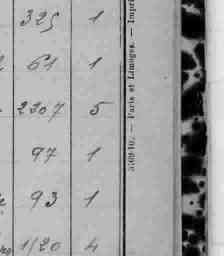 325 1
61 1
2207 5
97 1
93 1
1120 4
— Paris et Limoges. — Impri